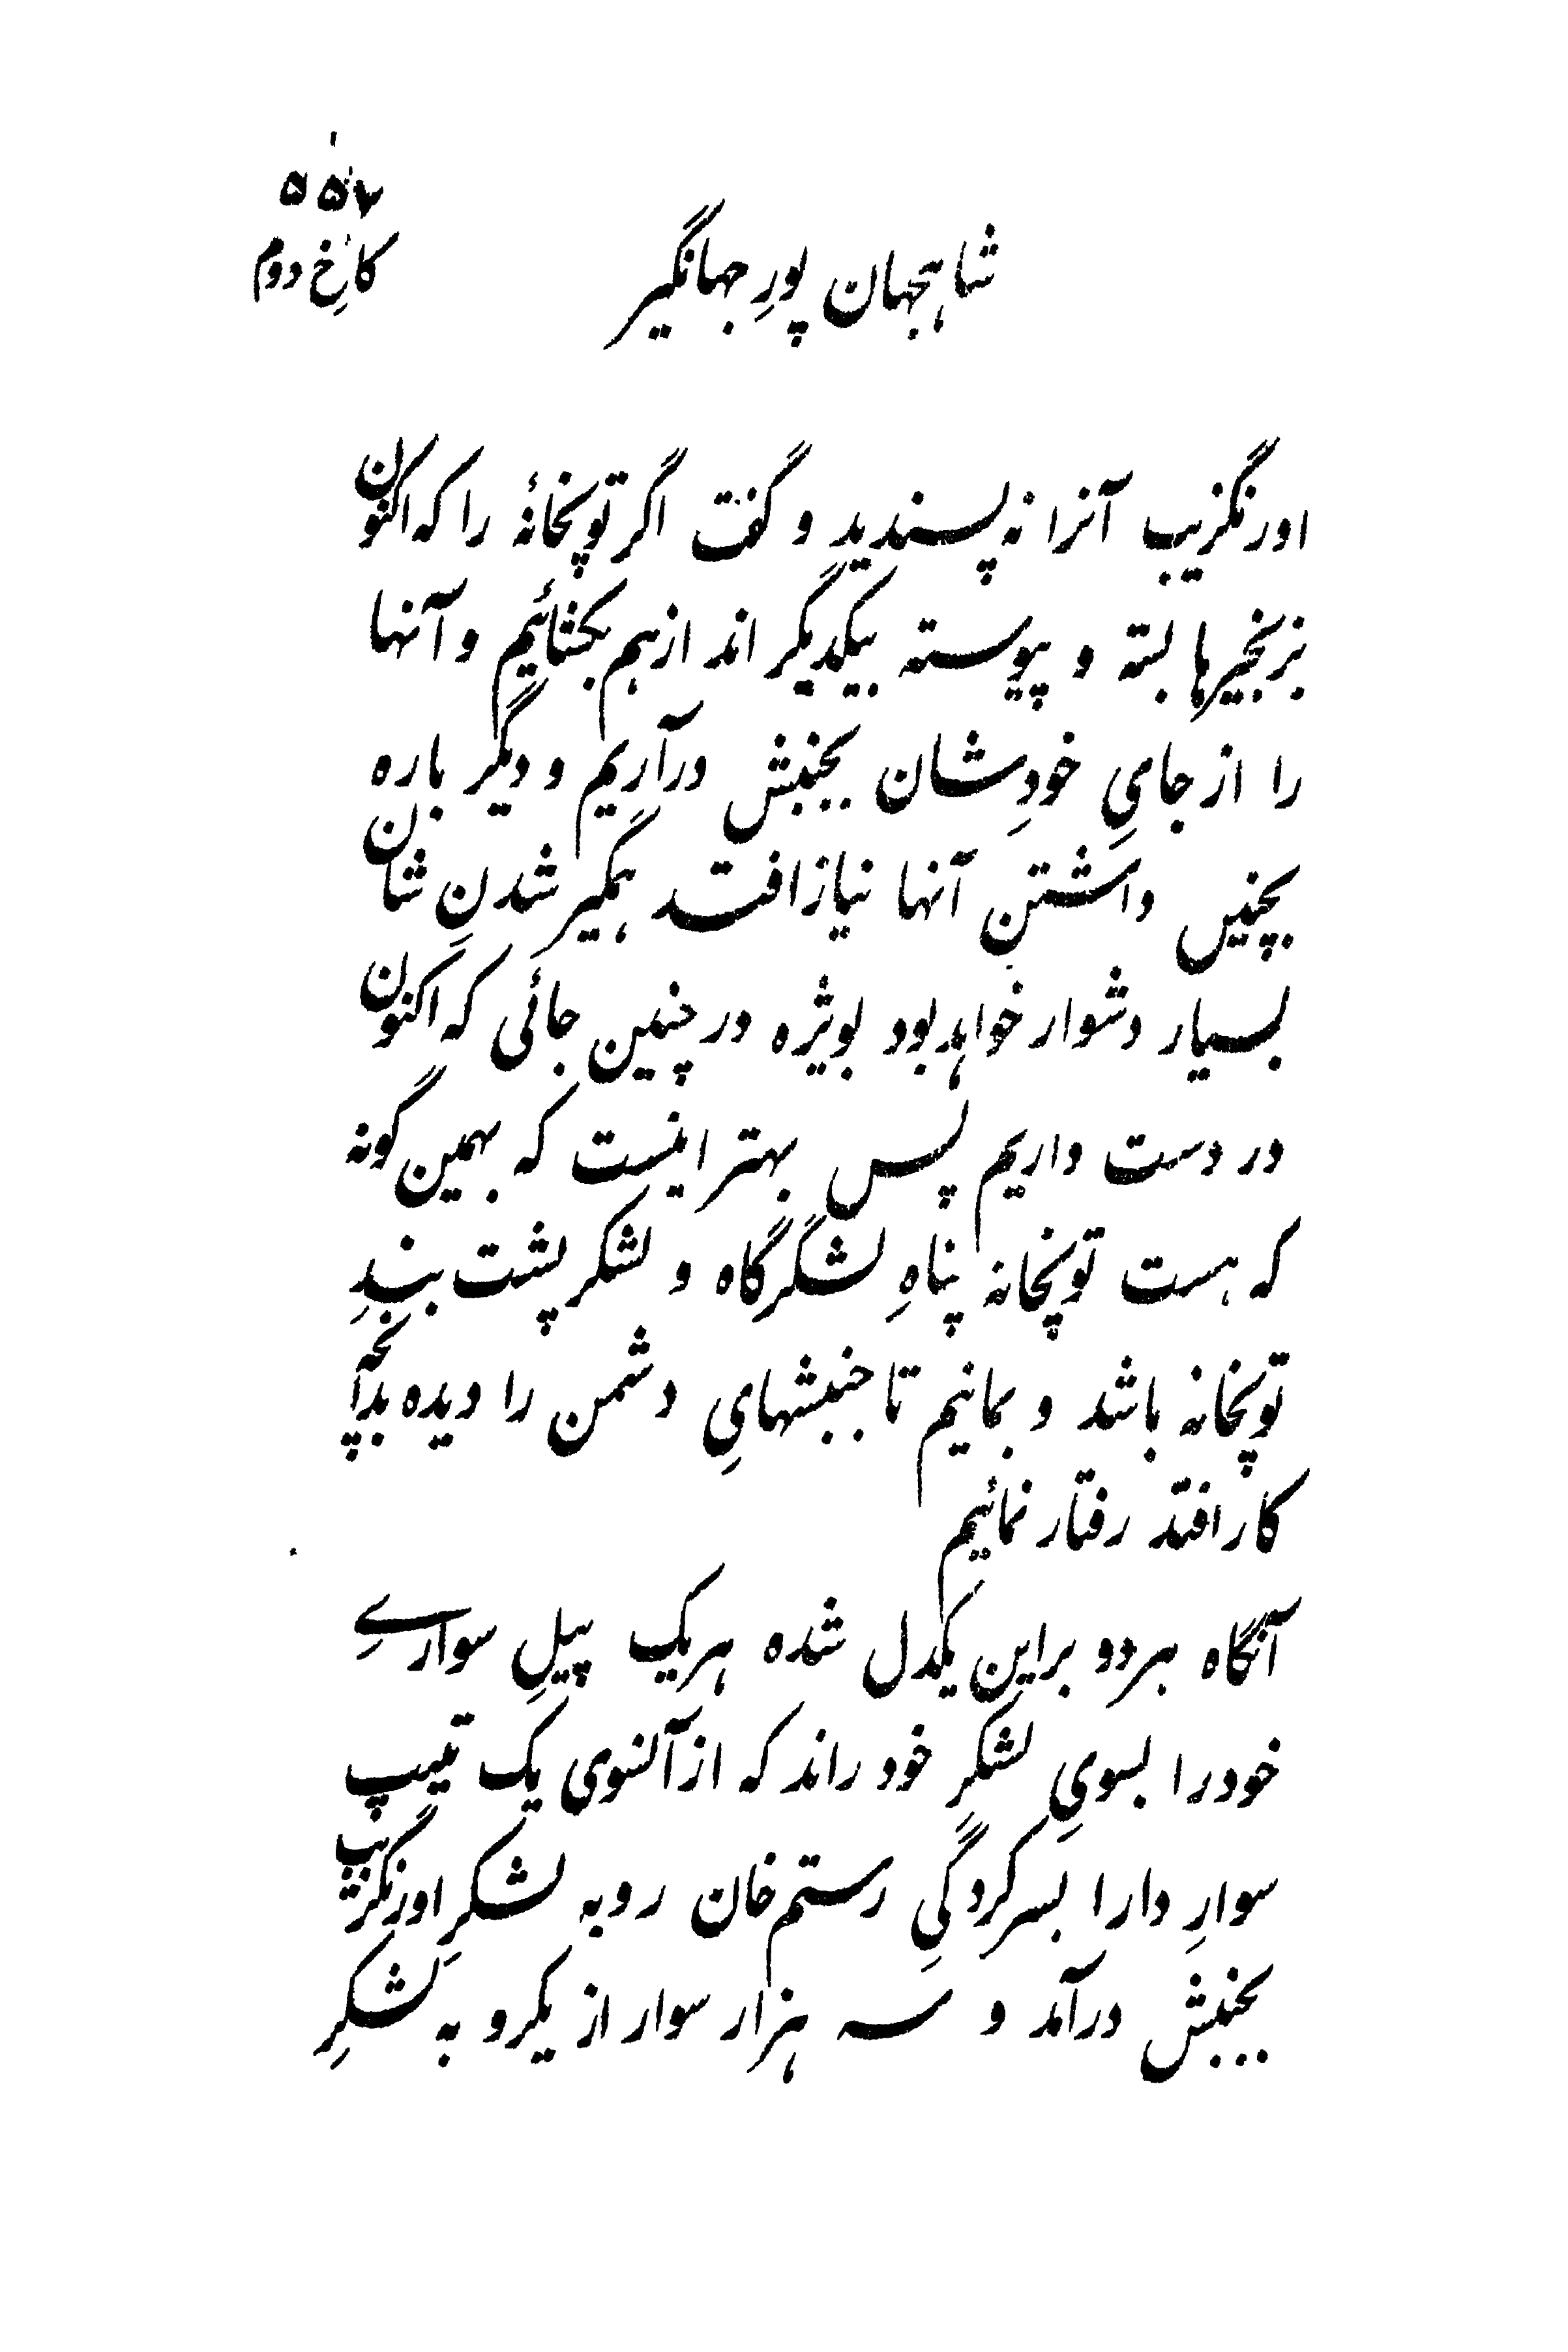 ۵۵۷
کاخِ دوم
شاہجہان پورِ جہانگیر
اورنگزیب آنرا نہ پسندید و گفت اگر توپخانۂ را کہ اکنون
بزنجیرہا بستہ و پیوستہ بیکدیگر اند از ہم بکشائیم و آنہا
را از جایِ خودِشان بجنبش درآریم و دیگر بارہ
بچنیں داشتنِ آنہا نیاز افتد ہمگیر شدنِ شان
بسیار دشوار خواہد بود بویژہ در چنین جائی کہ اکنون
در دست داریم پس بہتر اینست کہ بہمین گونہ
کہ ہست توپخانہ پناہِ لشگرگاہ و لشکر پشت بندِ
توپخانہ باشد و بمانیم تا جنبشہایِ دشمن را دیدہ بدآنچہ
کار افتد رفتار نمائیم
آنگاہ ہردو براین یکدل شدہ ہریک پیلِ سوارے
خودرا بسویِ لشکرِ خود راند کہ از آنسوی یک تیپ
سوارِ دارا بسرکردگیِ رستم خان روبہ لشکرِ اورنگزیب
بجنبش درآمد و سہ ہزار سوار از یکرو بہ لشکرِ